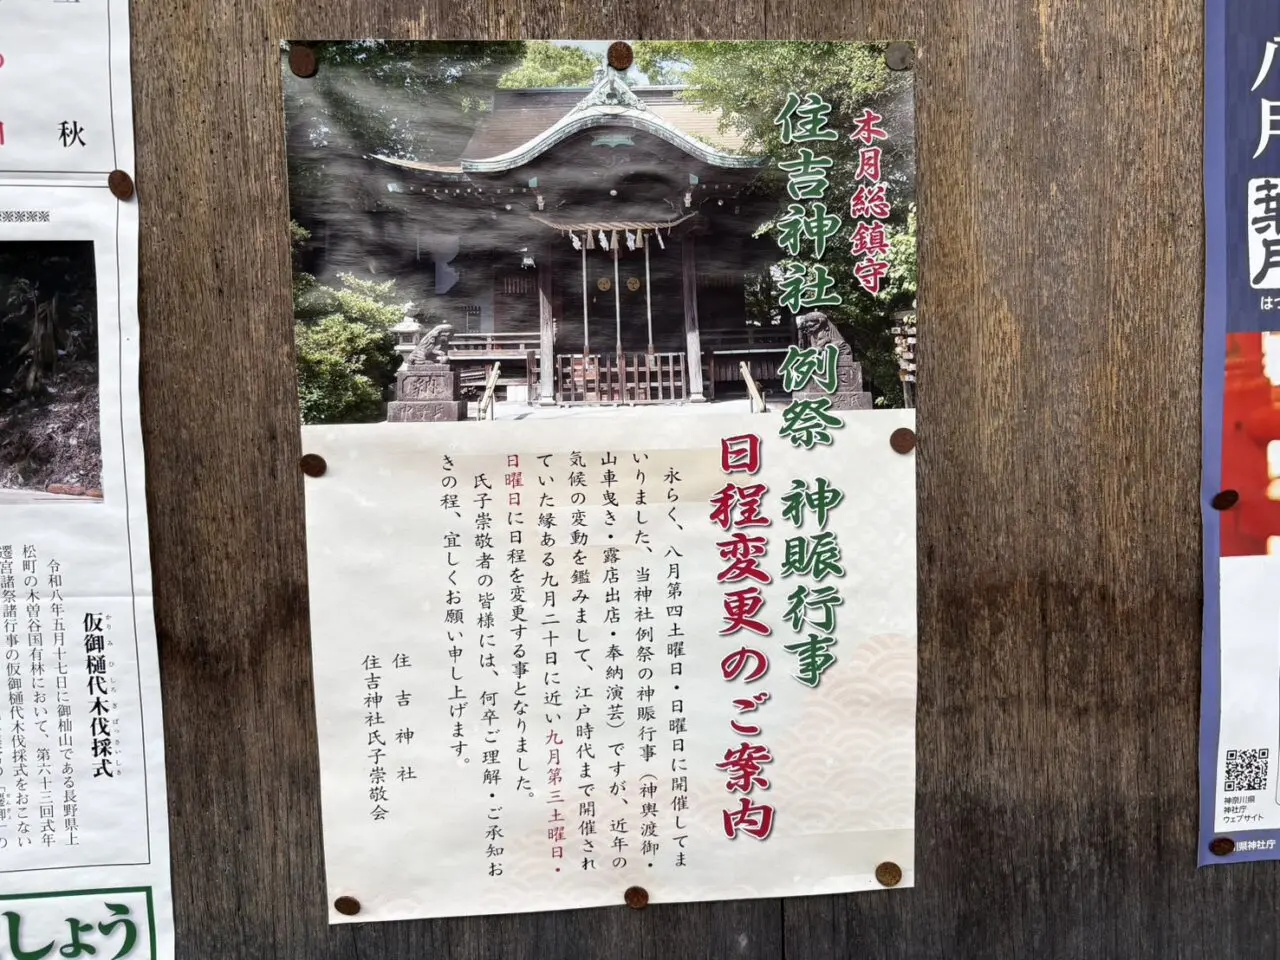 木月総鎮守
住吉神社 例祭 神賑行事
日程変更のご案内
永らく、八月第四土曜日・日曜日に開催してま
いりました、当神社例祭の神賑行事（神輿渡御・
山車曳き・露店出店・奉納演芸）ですが、近年の
気候の変動を鑑みまして、江戸時代まで開催され
ていた縁ある九月二十日に近い九月第三土曜日・
日曜日に日程を変更する事となりました。
氏子崇敬者の皆様には、何卒ご理解・ご承知お
きの程、宜しくお願い申し上げます。
住吉神社
住吉神社氏子崇敬会
納
秋
仮御樋代木伐採式
かりみひしろぎばっさいしき
令和八年五月十七日に御杣山である長野県上
松町の木曽谷国有林において、第六十三回式年
遷宮諸祭諸行事の仮御樋代木伐採式をおこない
しょう
八月
葉月
はづ
神奈川県
神社庁
ウェブサイト
川県神社庁